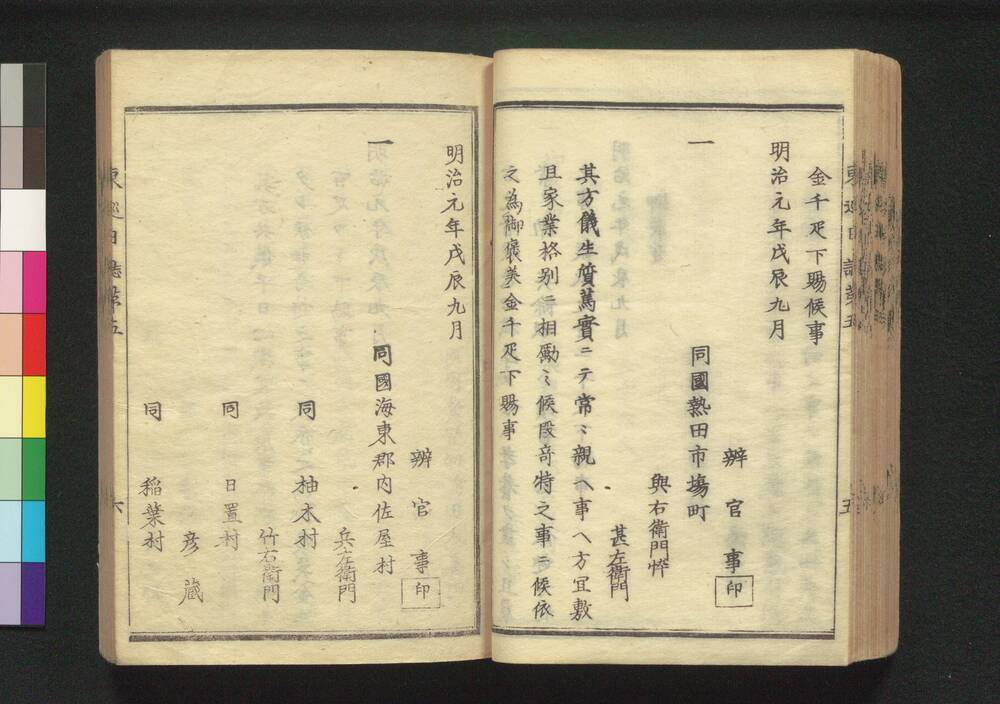 金千疋下賜候事
明治元年戊辰九月
辨官事 印
一 同國熱田市場町
與右衛門悴
甚左衛門
其方儀生質篤實ニテ常〻親ヘ事ヘ方宜敷
且家業格別ニ相勵ミ候段竒特之事ニ候依
之為御襃美金千疋下賜事
五
明治元年戊辰九月
辨官事 印
一 同國海東郡内佐屋村
兵左衛門
同 柚木村
竹右衛門
同 日置村
彦蔵
同 稲葉村
東巡日誌第五
六